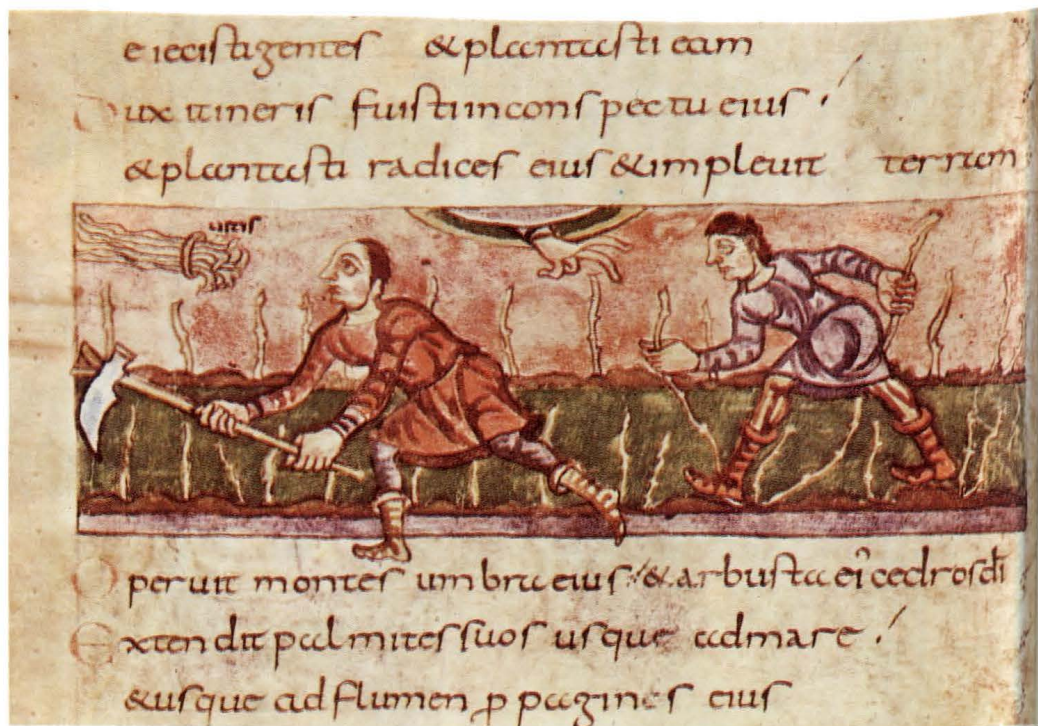 eiecisti gentes & plantasti eam
Dux itineris fuisti in conspectu eius
& plantasti radices eius & impleuit terram
Operuit montes umbra eius & arbusta ei̓ cedros dī
Extendit palmites suos usque ad mare
& usque ad flumen ꝓpagines eius